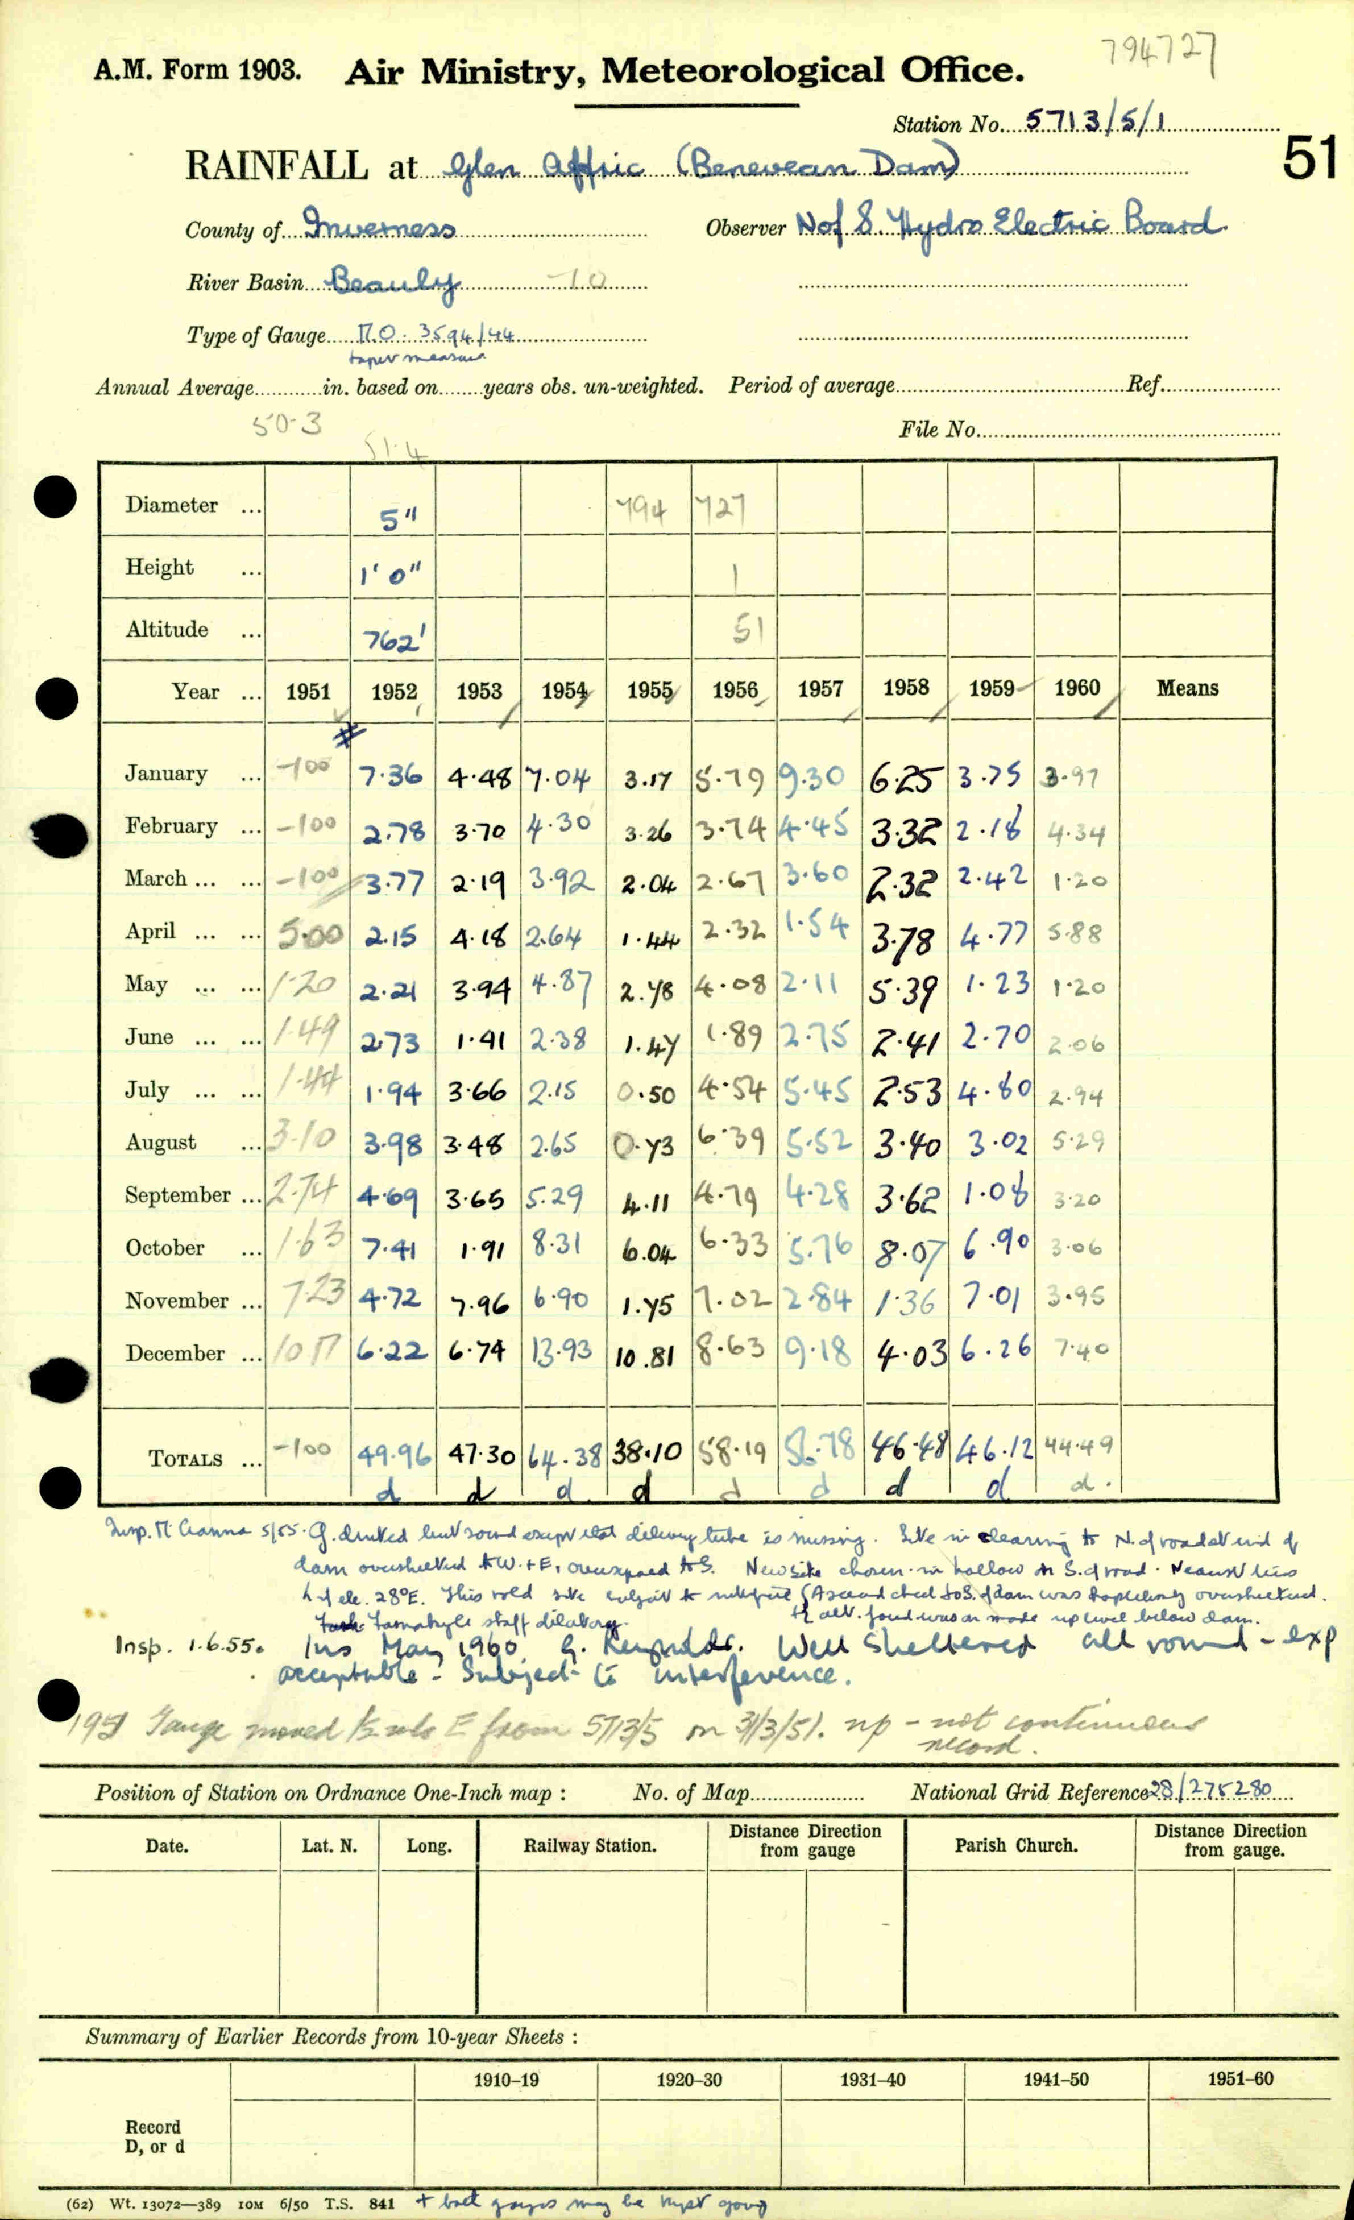 794727
A.M. Form 1903. Air Ministry, Meteorological Office.
Station No. 5713/5/1
51
RAINFALL at Glen Affric (Benevean Dam)
County of Inverness Observer N of S Hydro Electric Board
River Basin Beauly 10
Type of Gauge M.O. 3594/44
taper measure
Annual Average in. based on years obs. un-weighted. Period of average Ref.
50.3
File No.
51.4
Diameter ... 5" 794 727
Height ... 1' 0" 1
Altitude ... 762' 51
Year ... 1951 1952 1953 1954 1955 1956 1957 1958 1959 1960 Means
#
January ... -100 7.36 4.48 7.04 3.17 5.79 9.30 6.25 3.75 3.97
February ... -100 2.78 3.70 4.30 3.26 3.74 4.45 3.32 2.18 4.34
March ... ... -100 3.77 2.19 3.92 2.04 2.67 3.60 2.32 2.42 1.20
April ... ... 5.00 2.15 4.18 2.64 1.44 2.32 1.54 3.78 4.77 5.88
May ... ... 1.20 2.21 3.94 4.87 2.78 4.08 2.11 5.39 1.23 1.20
June ... ... 1.49 2.73 1.41 2.38 1.47 1.89 2.75 2.41 2.70 2.06
July ... ... 1.44 1.94 3.66 2.15 0.50 4.54 5.45 2.53 4.80 2.94
August ... 3.10 3.98 3.48 2.65 0.73 6.39 5.52 3.40 3.02 5.29
September ... 2.74 4.69 3.65 5.29 4.11 4.79 4.28 3.62 1.08 3.20
October ... 1.63 7.41 1.91 8.31 6.04 6.33 5.76 8.07 6.90 3.06
November ... 7.23 4.72 7.96 6.90 1.75 7.02 2.84 1.36 7.01 3.95
December ... 10.17 6.22 6.74 13.93 10.81 8.63 9.18 4.03 6.26 7.40
TOTALS ... -100 49.96 47.30 64.38 38.10 58.19 56.78 46.48 46.12 44.49
d d d d d d d d d.
Insp. 5/55. G. dented but sound except that delivery tube is missing. Site in clearing to N. of road at end of
dam oversheltered to W. + E, overexposed to S. New site chosen in hollow on S. of road. Nearest
28°E. This site subject to of dam was hopelessly oversheltered.
staff dilatory. alt. found was on made up level below dam.
Insp. 1.6.55. Ins May 1960. G. Reynolds. Well sheltered all round - exp
acceptable - Subject to interference.
1951 Gauge moved ½ mls E from 5713/5 on 31/3/51. np - not continuous
record.
Position of Station on Ordnance One-Inch map : No. of Map National Grid Reference 28/275280
Date. Lat. N. Long. Railway Station. Distance Direction from gauge Parish Church. Distance Direction from gauge.
Summary of Earlier Records from 10-year Sheets :
1910–19 1920–30 1931–40 1941–50 1951–60
Record
D, or d
(62) Wt. 13072—389 10M 6/50 T.S. 841 + both gauges may be kept going